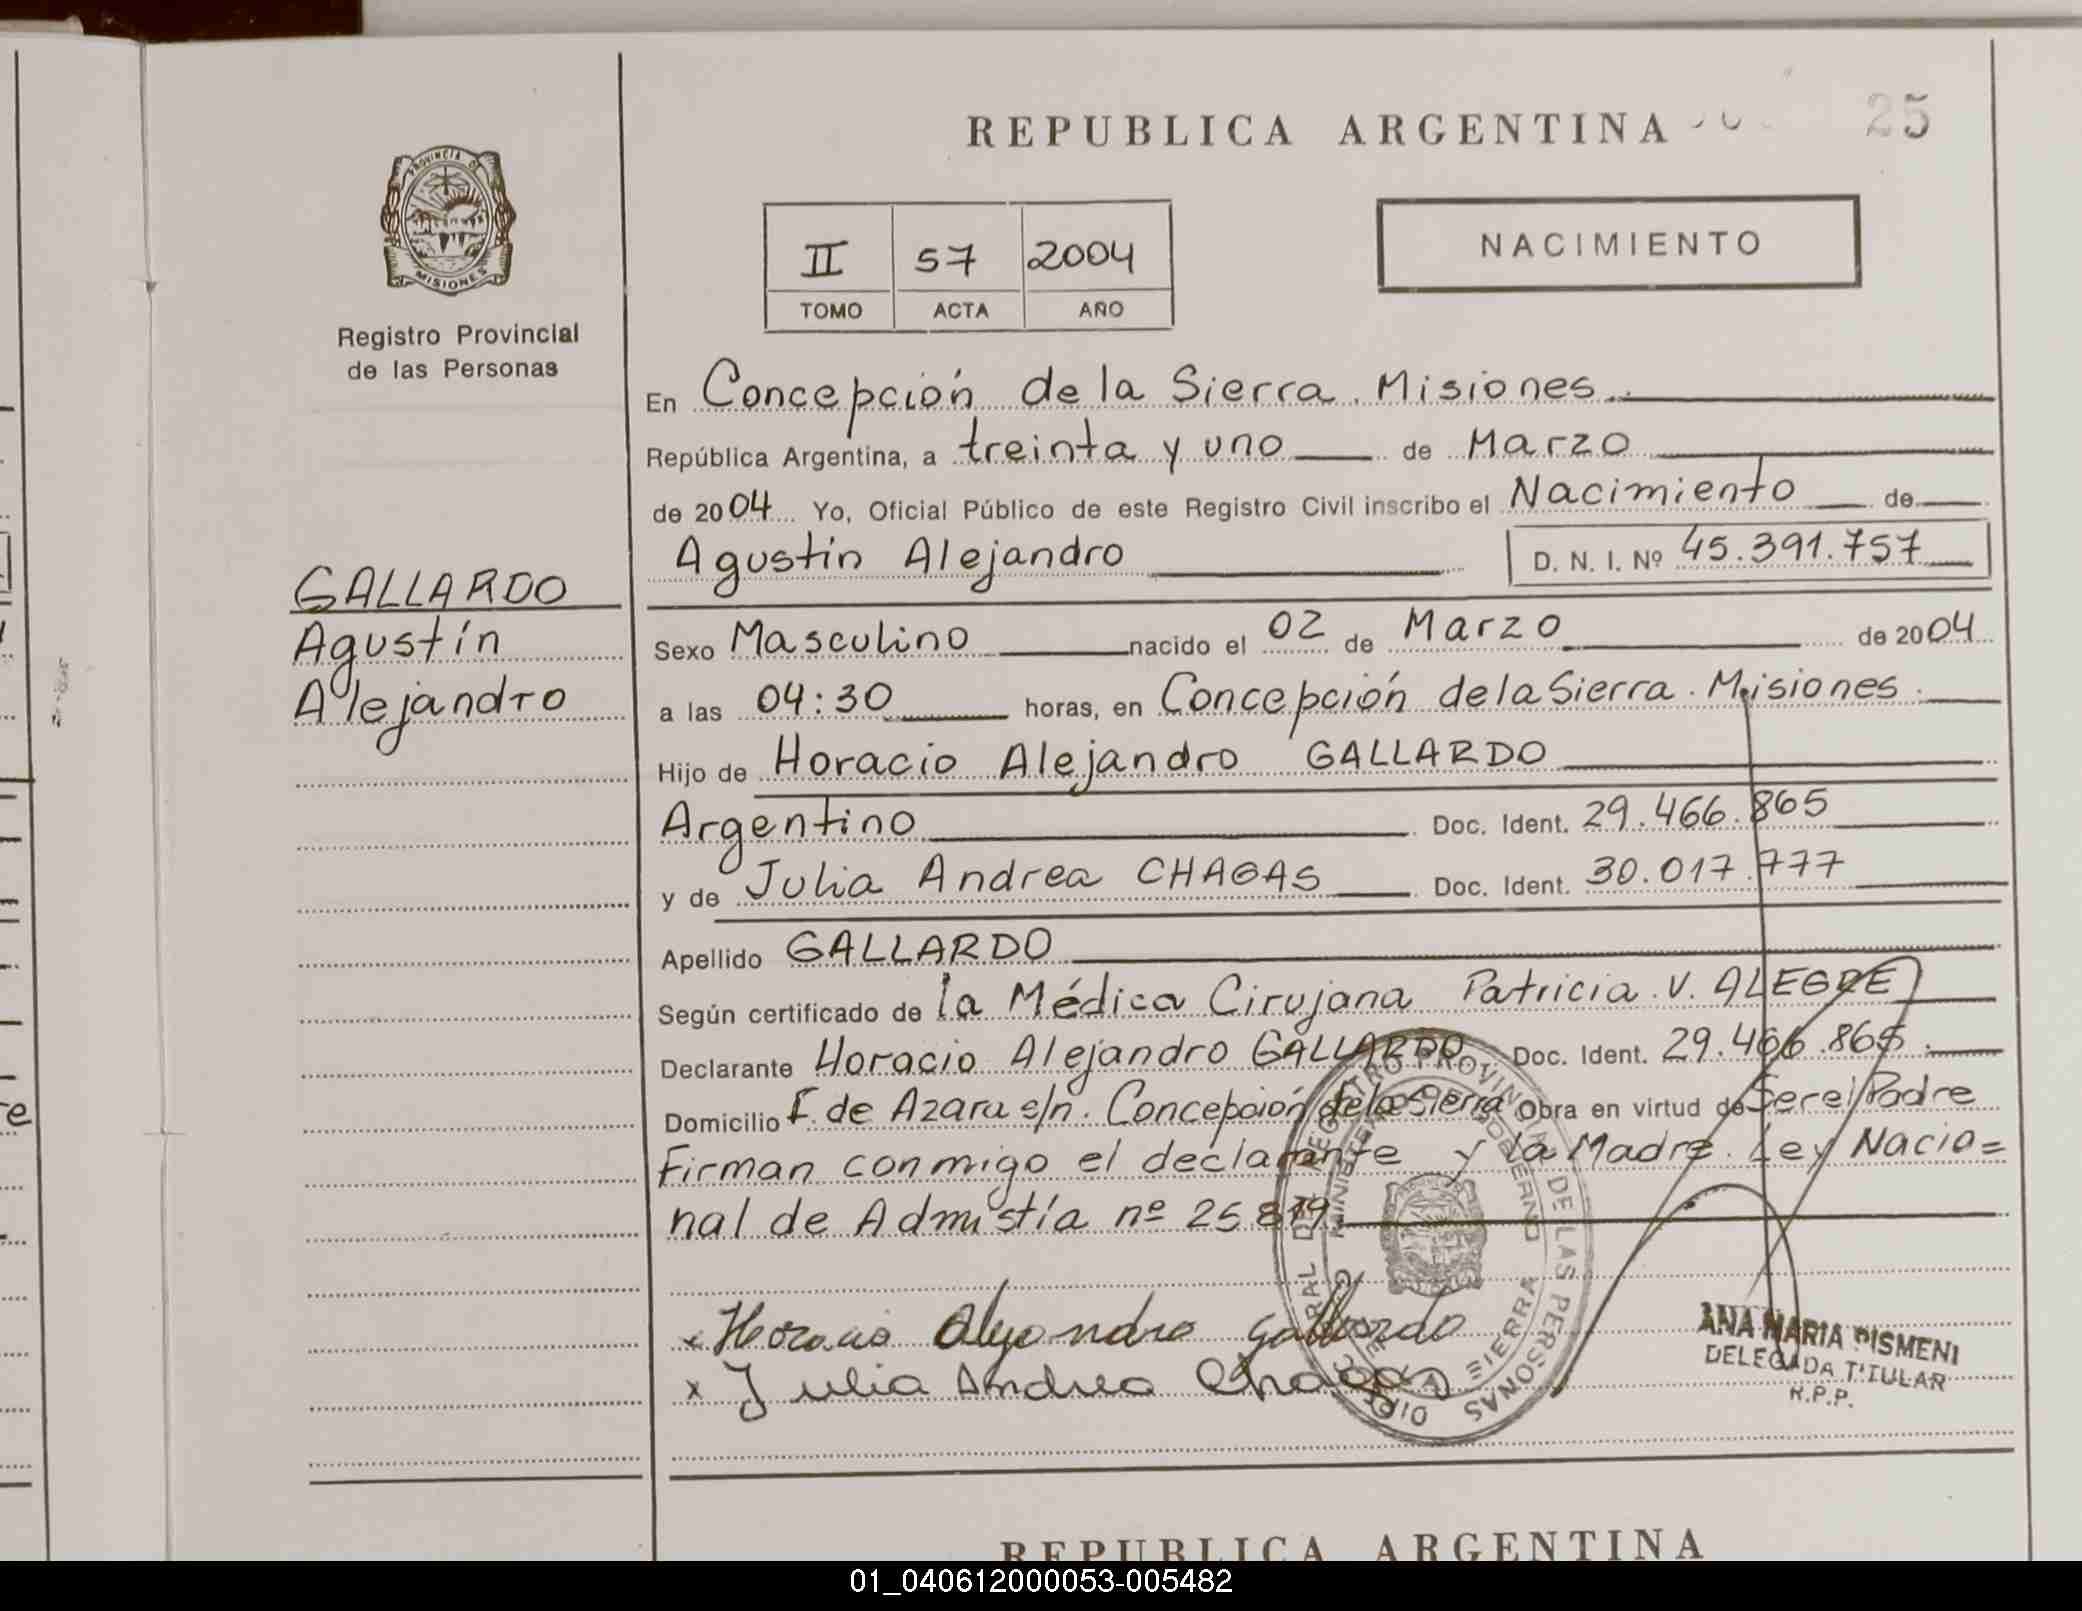 REPUBLICA ARGENTINA
25
PROVINCIA DE
MISIONES
Registro Provincial
de las Personas
II 57 2004
TOMO ACTA AÑO
NACIMIENTO
En Concepción de la Sierra. Misiones.
República Argentina, a treinta y uno de Marzo
de 2004 Yo, Oficial Público de este Registro Civil inscribo el Nacimiento de
Agustín Alejandro D. N. I. Nº 45.391.757
GALLARDO
Agustín
Alejandro
Sexo Masculino nacido el 02 de Marzo de 2004
a las 04:30 horas, en Concepción de la Sierra. Misiones.
Hijo de Horacio Alejandro GALLARDO
Argentino Doc. Ident. 29.466.865
y de Julia Andrea CHAGAS Doc. Ident. 30.017.777
Apellido GALLARDO
Según certificado de la Médica Cirujana Patricia. V. ALEGRE
Declarante Horacio Alejandro GALLARDO Doc. Ident. 29.466.865.
Domicilio F. de Azara s/n. Concepción de la Sierra Obra en virtud de Ser el Padre
Firman conmigo el declarante y la Madre. Ley Nacio=
nal de Admistía nº 25.819
x Horacio Alejandro Gallardo
x Julia Andrea Chagas
ANA MARIA PISMENI
DELEGADA TITULAR
R.P.P.
REPUBLICA ARGENTINA
01_040612000053-005482